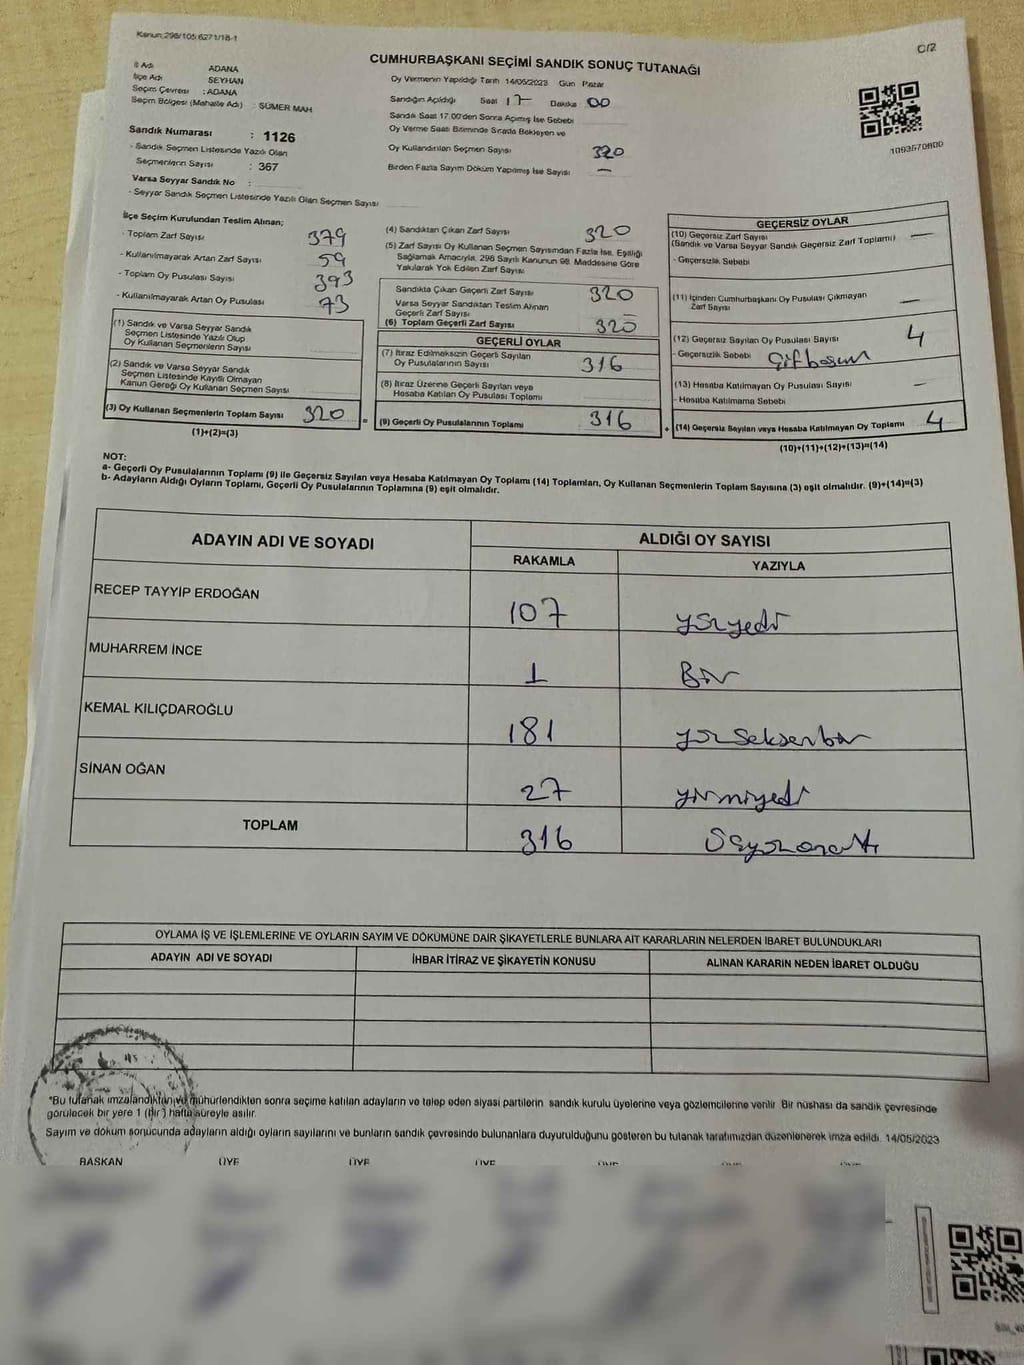 Kanun:298/105;6271/18-1
C/2
CUMHURBAŞKANI SEÇİMİ SANDIK SONUÇ TUTANAĞI
İl Adı ADANA
İlçe Adı SEYHAN
Seçim Çevresi : ADANA
Seçim Bölgesi (Mahalle Adı) : SÜMER MAH
Sandık Numarası : 1126
- Sandık Seçmen Listesinde Yazılı Olan
Seçmenlerin Sayısı : 367
Varsa Seyyar Sandık No :
- Seyyar Sandık Seçmen Listesinde Yazılı Olan Seçmen Sayısı
Oy Vermenin Yapıldığı Tarih 14/05/2023 Gün Pazar
Sandığın Açıldığı Saat 17 Dakika 00
Sandık Saat 17.00'den Sonra Açılmış İse Sebebi
Oy Verme Saati Bitiminde Sırada Bekleyen ve
Oy Kullandırılan Seçmen Sayısı 320
Birden Fazla Sayım Döküm Yapılmış İse Sayısı —
1063570600
İlçe Seçim Kurulundan Teslim Alınan;
- Toplam Zarf Sayısı 379
- Kullanılmayarak Artan Zarf Sayısı 59
- Toplam Oy Pusulası Sayısı 393
- Kullanılmayarak Artan Oy Pusulası 73
(1) Sandık ve Varsa Seyyar Sandık
Seçmen Listesinde Yazılı Olup
Oy Kullanan Seçmenlerin Sayısı
(2) Sandık ve Varsa Seyyar Sandık
Seçmen Listesinde Kayıtlı Olmayan
Kanun Gereği Oy Kullanan Seçmen Sayısı
(3) Oy Kullanan Seçmenlerin Toplam Sayısı 320 =
(1)+(2)=(3)
(4) Sandıktan Çıkan Zarf Sayısı 320
(5) Zarf Sayısı Oy Kullanan Seçmen Sayısından Fazla İse, Eşitliği
Sağlamak Amacıyla, 298 Sayılı Kanunun 98. Maddesine Göre
Yakılarak Yok Edilen Zarf Sayısı
Sandıkta Çıkan Geçerli Zarf Sayısı 320
Varsa Seyyar Sandıktan Teslim Alınan
Geçerli Zarf Sayısı —
(6) Toplam Geçerli Zarf Sayısı 320
GEÇERLİ OYLAR
(7) İtiraz Edilmeksizin Geçerli Sayılan
Oy Pusulalarının Sayısı 316
(8) İtiraz Üzerine Geçerli Sayılan veya
Hesaba Katılan Oy Pusulası Toplamı
(9) Geçerli Oy Pusulalarının Toplamı 316 +
GEÇERSİZ OYLAR
(10) Geçersiz Zarf Sayısı
(Sandık ve Varsa Seyyar Sandık Geçersiz Zarf Toplamı) —
- Geçersizlik Sebebi
(11) İçinden Cumhurbaşkanı Oy Pusulası Çıkmayan
Zarf Sayısı —
(12) Geçersiz Sayılan Oy Pusulası Sayısı 4
- Geçersizlik Sebebi Çiftbasım
(13) Hesaba Katılmayan Oy Pusulası Sayısı —
- Hesaba Katılmama Sebebi
(14) Geçersiz Sayılan veya Hesaba Katılmayan Oy Toplamı 4
(10)+(11)+(12)+(13)=(14)
NOT:
a- Geçerli Oy Pusulalarının Toplamı (9) ile Geçersiz Sayılan veya Hesaba Katılmayan Oy Toplamı (14) Toplamları, Oy Kullanan Seçmenlerin Toplam Sayısına (3) eşit olmalıdır. (9)+(14)=(3)
b- Adayların Aldığı Oyların Toplamı, Geçerli Oy Pusulalarının Toplamına (9) eşit olmalıdır.
ADAYIN ADI VE SOYADI ALDIĞI OY SAYISI
RAKAMLA YAZIYLA
RECEP TAYYİP ERDOĞAN 107 yüzyedi
MUHARREM İNCE 1 Bir
KEMAL KILIÇDAROĞLU 181 yüzseksenbir
SİNAN OĞAN 27 yirmiyedi
TOPLAM 316 Üçyüzonaltı
OYLAMA İŞ VE İŞLEMLERİNE VE OYLARIN SAYIM VE DÖKÜMÜNE DAİR ŞİKAYETLERLE BUNLARA AİT KARARLARIN NELERDEN İBARET BULUNDUKLARI
ADAYIN ADI VE SOYADI İHBAR İTİRAZ VE ŞİKAYETİN KONUSU ALINAN KARARIN NEDEN İBARET OLDUĞU
*Bu tutanak imzalandıktan ve mühürlendikten sonra seçime katılan adayların ve talep eden siyasi partilerin sandık kurulu üyelerine veya gözlemcilerine verilir. Bir nüshası da sandık çevresinde
görülecek bir yere 1 (bir) hafta süreyle asılır.
Sayım ve döküm sonucunda adayların aldığı oyların sayılarını ve bunların sandık çevresinde bulunanlara duyurulduğunu gösteren bu tutanak tarafımızdan düzenlenerek imza edildi. 14/05/2023
BAŞKAN ÜYE ÜYE ÜYE ÜYE ÜYE ÜYE